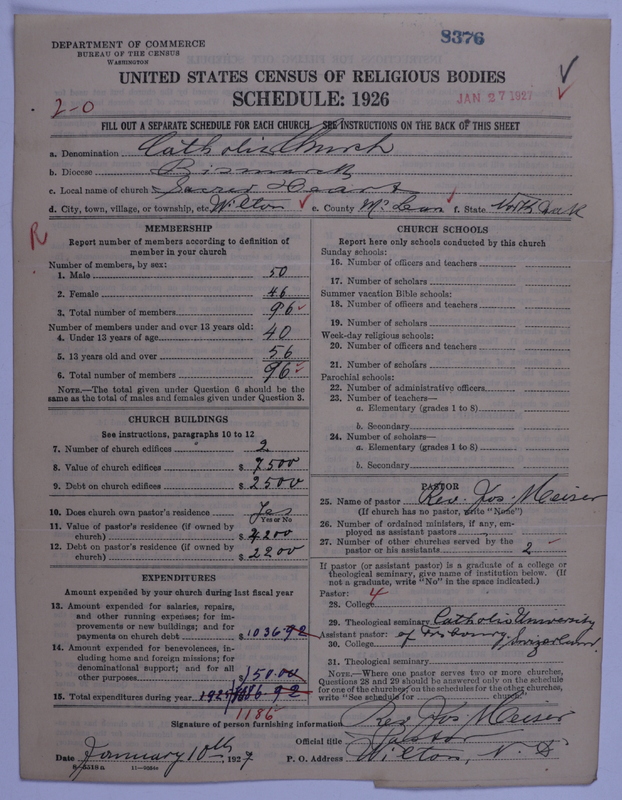 8376
DEPARTMENT OF COMMERCE
BUREAU OF THE CENSUS
WASHINGTON
UNITED STATES CENSUS OF RELIGIOUS BODIES
SCHEDULE: 1926
JAN 27 1927
2-0
FILL OUT A SEPARATE SCHEDULE FOR EACH CHURCH. SEE INSTRUCTIONS ON THE BACK OF THIS SHEET
a. Denomination Catholic Church
b. Diocese Bismarck
c. Local name of church Sacred Heart
d. City, town, village, or township, etc. Wilton e. County McLean f. State North Dak
R
MEMBERSHIP
Report number of members according to definition of member in your church
Number of members, by sex:
1. Male 50
2. Female 46
3. Total number of members 96
Number of members under and over 13 years old:
4. Under 13 years of age 40
5. 13 years old and over 56
6. Total number of members 96
NOTE.—The total given under Question 6 should be the
same as the total of males and females given under Question 3.
CHURCH BUILDINGS
See instructions, paragraphs 10 to 12
7. Number of church edifices 2
8. Value of church edifices $ 7500
9. Debt on church edifices $ 2500
10. Does church own pastor's residence Yes
Yes or No
11. Value of pastor's residence (if owned by
church) $ 4200
12. Debt on pastor's residence (if owned by
church) $ 2200
EXPENDITURES
Amount expended by your church during last fiscal year
13. Amount expended for salaries, repairs,
and other running expenses; for im-
provements or new buildings; and for
payments on church debt $ 1036 92
14. Amount expended for benevolences, in-
cluding home and foreign missions; for
denominational support; and for all
other purposes $ 150.00
15. Total expenditures during year 92
1186
CHURCH SCHOOLS
Report here only schools conducted by this church
Sunday schools:
16. Number of officers and teachers
17. Number of scholars
Summer vacation Bible schools:
18. Number of officers and teachers
19. Number of scholars
Week-day religious schools:
20. Number of officers and teachers
21. Number of scholars
Parochial schools:
22. Number of administrative officers
23. Number of teachers—
a. Elementary (grades 1 to 8)
b. Secondary
24. Number of scholars—
a. Elementary (grades 1 to 8)
b. Secondary
PASTOR
25. Name of pastor Rev. Jos. Meiser
(If church has no pastor, write "None")
26. Number of ordained ministers, if any, em-
ployed as assistant pastors
27. Number of other churches served by the
pastor or his assistants 2
If pastor (or assistant pastor) is a graduate of a college or
theological seminary, give name of institution below. (If
not a graduate, write "No" in the space indicated.)
Pastor: 4
28. College
29. Theological seminary Catholic University
Assistant pastor: of Fribourg, Switzerland.
30. College
31. Theological seminary
NOTE.—Where one pastor serves two or more churches,
Questions 28 and 29 should be answered only on the schedule
for one of the churches; on the schedules for the other churches,
write "See schedule for church."
Signature of person furnishing information Rev. Jos Meiser
Official title Pastor
Date January 10th 1927 P. O. Address Wilton, N. D